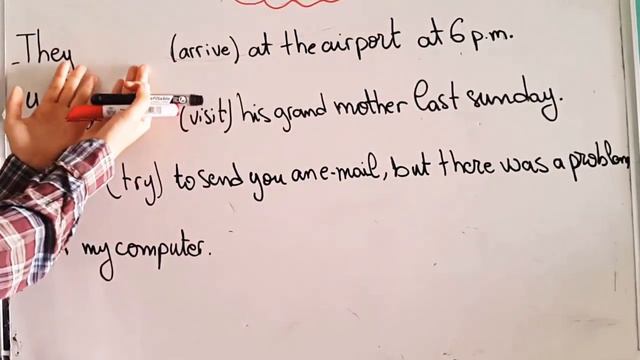 - They (arrive) at the airport at 6 p.m.
(visit) his grand mother last sunday.
(try) to send you an e-mail, but there was a problem
my computer.